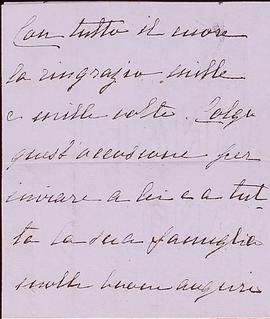 Con tutto il cuore
la ringrazio mille
e mille volte. Colgo
quest'occasione per
inviare a lei e a tut-
ta la sua famiglia
molti buoni auguri